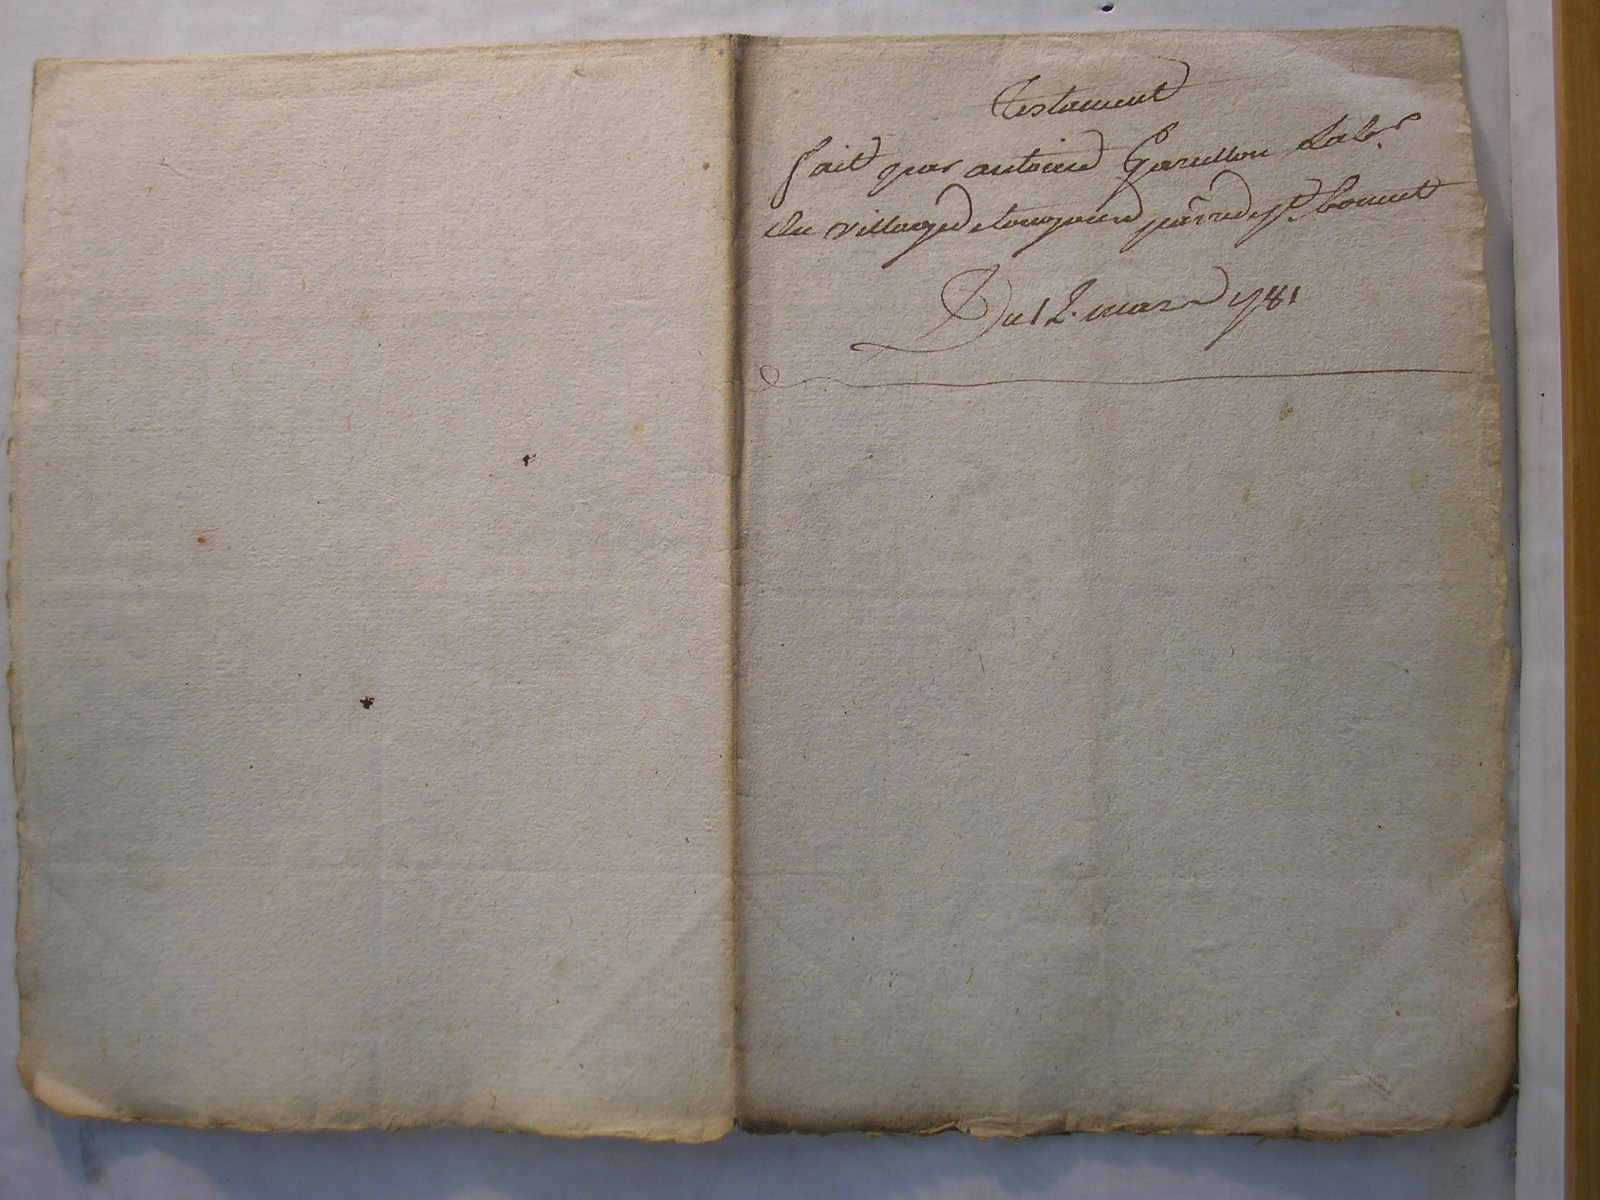 Testament
fait par antoine Garillon Lab.r
du village de Longous parr.e de St. bonnet
Du 12. mars 1781